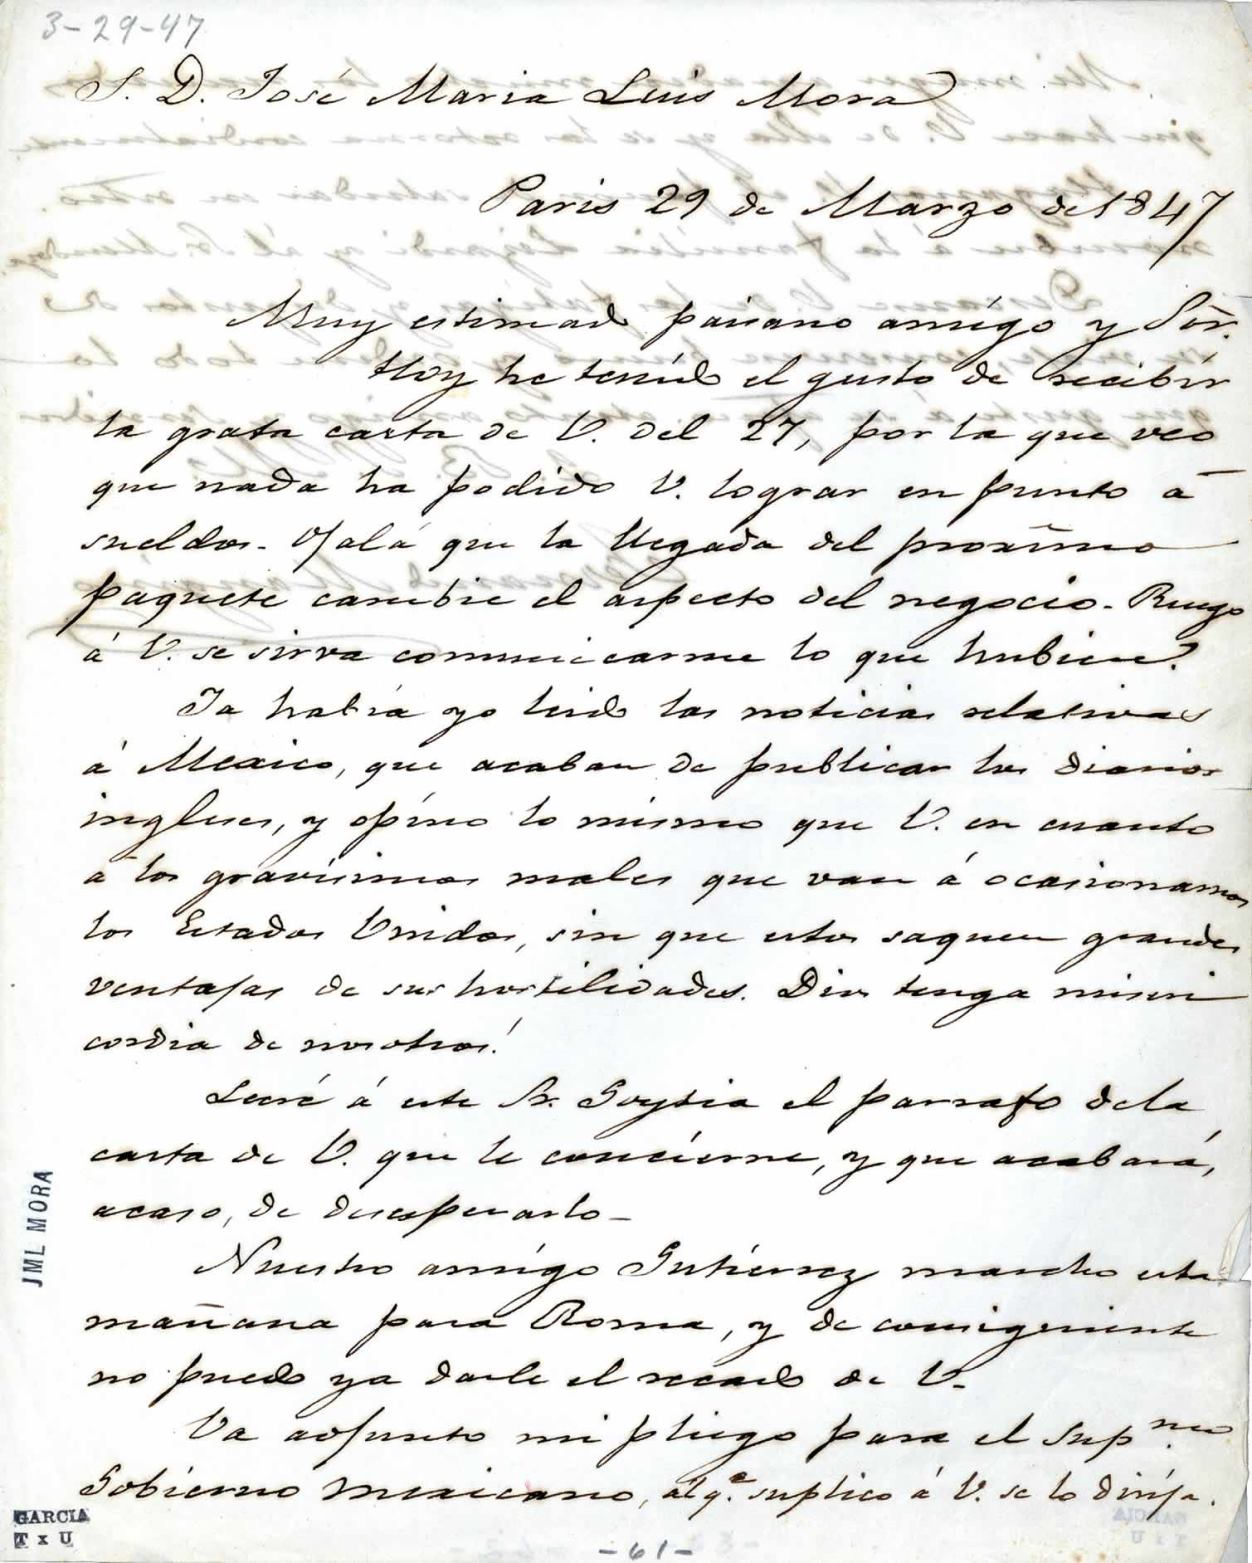 3-29-47
S. D. José Maria Luis Mora
Paris 29 de Marzo de 1847
Muy estimado paisano amigo y Sōr.
Hoy he tenido el gusto de recibir
la grata carta de V. del 27, por la que veo
que nada ha podido V. lograr en punto á
sueldos. Ojalá que la llegada del proximo
paquete cambie el aspecto del negocio. Ruego
á V. se sirva comunicarme lo que hubiere.
Ya habia yo leido las noticias relativas
á Mexico, que acaban de publicar los diarios
ingleses, y opino lo mismo que V. en cuanto
a los gravísimos males que van á ocasionarnos
los Estados Unidos, sin que estos saquen grandes
ventajas de sus hostilidades. Dios tenga miseri
cordia de nosotros!
Leeré á este Sr. el parrafo de la
carta de V. que le concierne, y que acabará,
acaso, de desesperarlo.
Nuestro amigo Gutierrez marcho esta
mañana para Roma, y de consiguiente
no puedo ya darle el recado de V.
Va adjunto mi pliego para el Supmo.
Gobierno mexicano, al q.e suplico á V. se lo dirija.
JML MORA
GARCIA
T x U
-61-